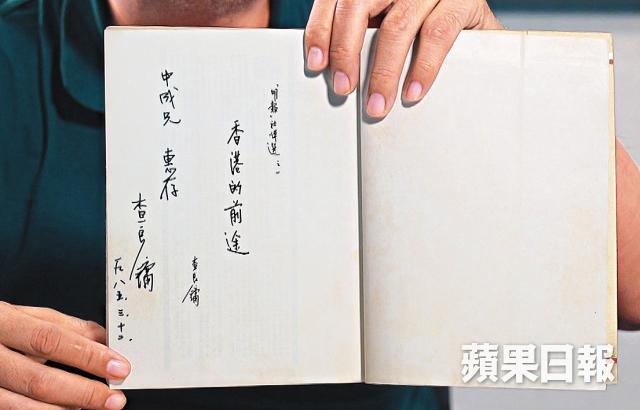 「明報」社評選之一
香港的前途
查良鏞
中成兄 惠存
查良鏞
一九八五.三.十二.
蘋果日報